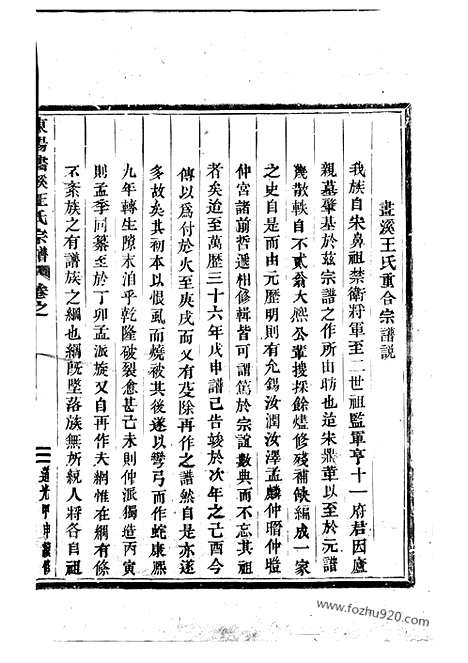 畫溪王氏重合宗譜説
我族自宋鼻祖禁衛將軍至二世祖監軍亨十一府君因廬
親墓肇基於兹宗譜之作所由昉也迨宋鼎革以至於元譜
帙散軼自不貳翁大熈公軰搜採餘燼修殘補缺編成一家
之史自是而由元歷明則有允錫汝潤汝澤孟麟仲瑨仲
仲宫諸前哲遞相修輯皆可謂篤於宗誼數典而不忘其祖
者矣迨至萬歷三十六年戊申譜已告竣於次年之己酉今
傳以爲付於火至庚戌而又有芟除再作之譜然自是亦遂
多故矣其初本以恨虱而燒被其後遂以彎弓而作蛇康熙
九年轉生隙末洎乎乾隆破裂愈甚己未則仲派獨造丙寅
則孟季同纂至於丁卯孟派族又自再作夫網惟在綱有條
不紊族之有譜族之綱也綱既墜落族無所統人將各自祖
東陽畫溪王氏宗譜 卷之一
道光甲申重修
www.fozhu920.com